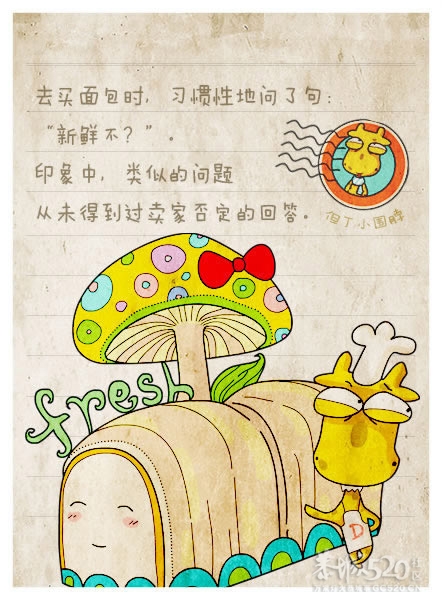 去买面包时，习惯性地问了句：
“新鲜不？”。
印象中，类似的问题
从未得到过卖家否定的回答。
但丁小围脖
fresh
D